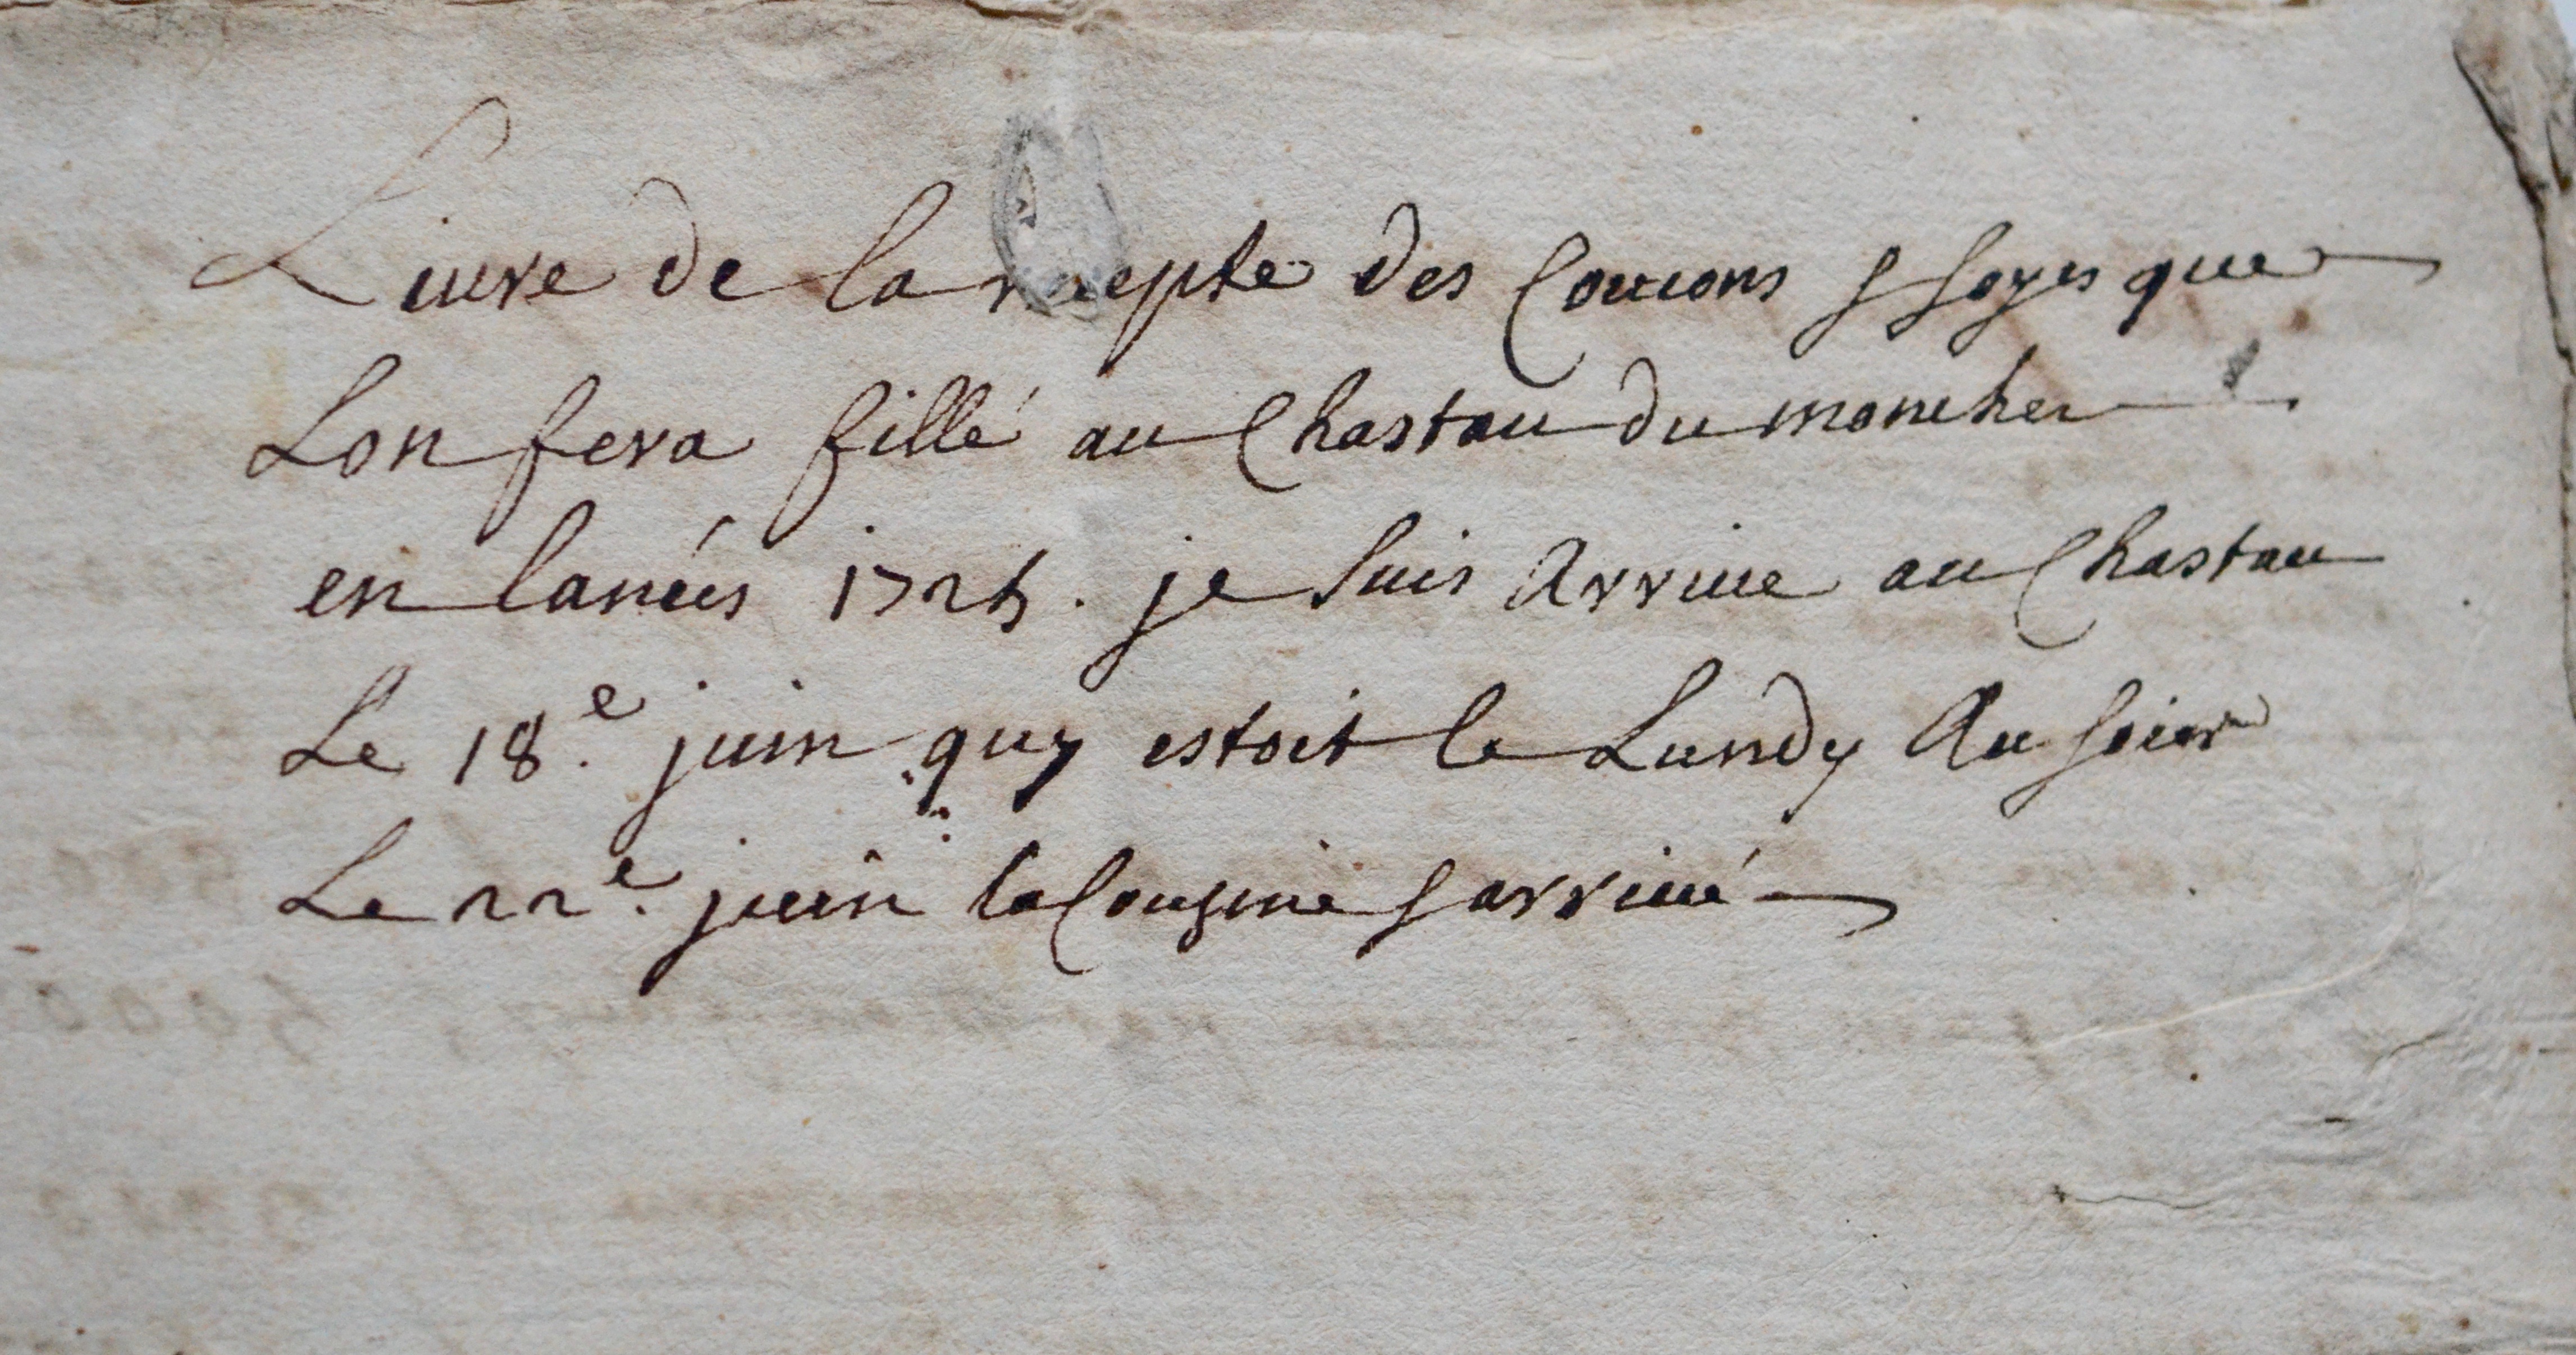 Livre de la recepte des Coucons & soyes que
Lon fera fillé au Chastau du moncher
en lanées 1725. je suis Arrive au Chastau
Le 18.e juin quy estoit le Lundy Au soier
Le 22.e juin la Cousine s arrivé